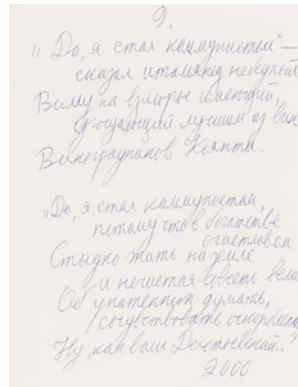 9.
„Да, я стал коммунистом" —
сказал итальянец небедный
Виллу на взморье имеющий,
угощающий лучшим из вин
Виноградников Кьянти.
„Да, я стал коммунистом,
потому что в богатстве
счастливом
Стыдно жить на земле
и нечистая совесть велит
Об угнетенных думать,
сочувствовать
Ну, как ваш Достоевский..."
2000